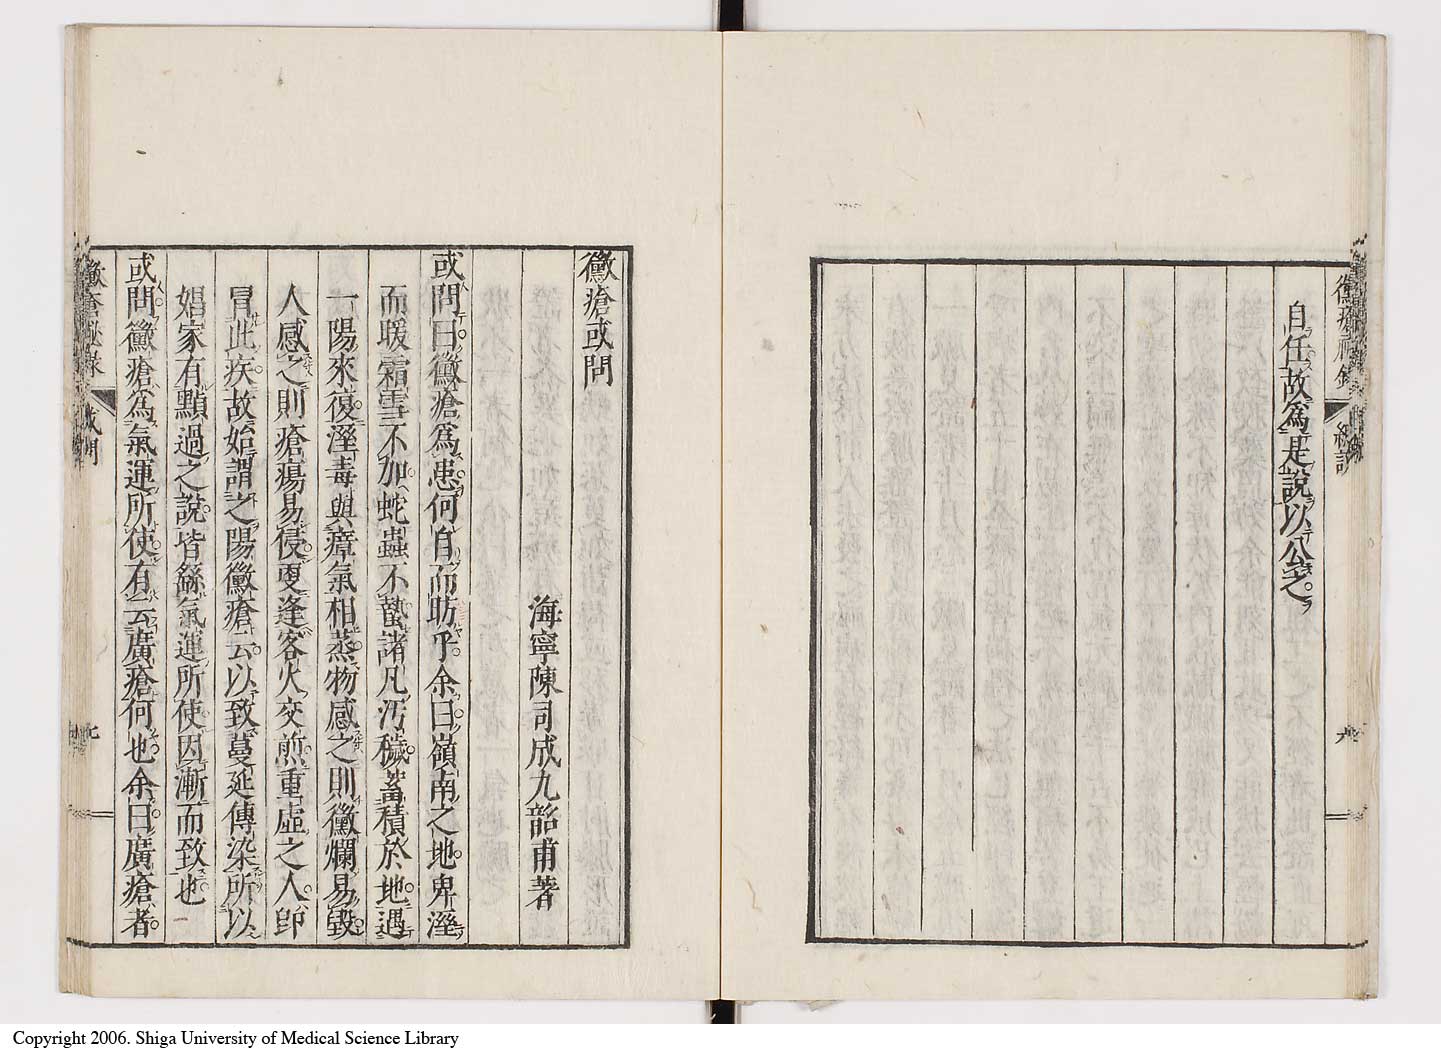 黴瘡秘錄
總說
九
自任故爲是說以公之
黴瘡或問
海寧陳司成九韶甫著
或問曰黴瘡爲患何自而昉乎余曰嶺南之地卑溼
而暖霜雪不加蛇蟲不蟄諸凡汚穢蓄積於地遇
一陽來復溼毒與瘴氣相蒸物感之則黴爛易毀
人感之則瘡瘍易侵更逢客火交煎重虛之人卽
冒此疾故始謂之陽黴瘡云以致蔓延傳染所以
娼家有顯過之說皆繇氣運所使因漸而致也
或問黴瘡爲氣運所使有云廣瘡何也余曰廣瘡者
黴瘡秘錄
或問
Copyright 2006. Shiga University of Medical Science Library